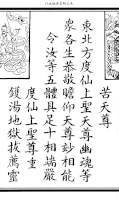 苦天尊
東北方度仙上聖天尊幽魂等
衆各生恭敬瞻仰天尊妙相已
令汝等五體具足十相端嚴
度仙上聖尊重
鑊湯地獄拔薦靈